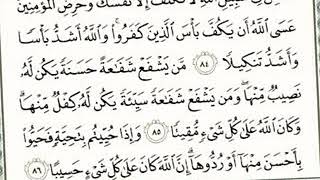 سَبِيلِ ٱللَّهِ لَا تُكَلَّفُ إِلَّا نَفْسَكَ وَحَرِّضِ ٱلْمُؤْمِنِينَ
عَسَى ٱللَّهُ أَن يَكُفَّ بَأْسَ ٱلَّذِينَ كَفَرُوا۟ وَٱللَّهُ أَشَدُّ بَأْسًا
وَأَشَدُّ تَنكِيلًا ٨٤ مَّن يَشْفَعْ شَفَٰعَةً حَسَنَةً يَكُن لَّهُۥ
نَصِيبٌ مِّنْهَا وَمَن يَشْفَعْ شَفَٰعَةً سَيِّئَةً يَكُن لَّهُۥ كِفْلٌ مِّنْهَا
وَكَانَ ٱللَّهُ عَلَىٰ كُلِّ شَىْءٍ مُّقِيتًا ٨٥ وَإِذَا حُيِّيتُم بِتَحِيَّةٍ فَحَيُّوا۟
بِأَحْسَنَ مِنْهَآ أَوْ رُدُّوهَآ إِنَّ ٱللَّهَ كَانَ عَلَىٰ كُلِّ شَىْءٍ حَسِيبًا ٨٦